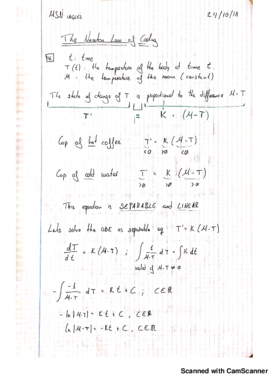 24/10/18
The Newton Law of Cooling
t: time
T(t): the temperature of the body at time t.
M: the temperature of the room (constant)
The state of change of T is proportional to the difference M-T
T' = K · (M-T)
Cup of hot coffee T' = K (M-T)
<0 >0 <0
Cup of cold water T' = K · (M-T)
>0 >0 >0
This equation is SEPARABLE and LINEAR
Lets solve the ODE as separable eq: T' = K (M-T)
dT/dt = K (M-T) ; ∫ 1/(M-T) dT = ∫ K dt
valid if M-T ≠ 0
-∫ -1/(M-T) dT = Kt + C ; C∈R
-ln|M-T| = Kt + C, C∈R
ln|M-T| = -Kt + C, C∈R
Scanned with CamScanner